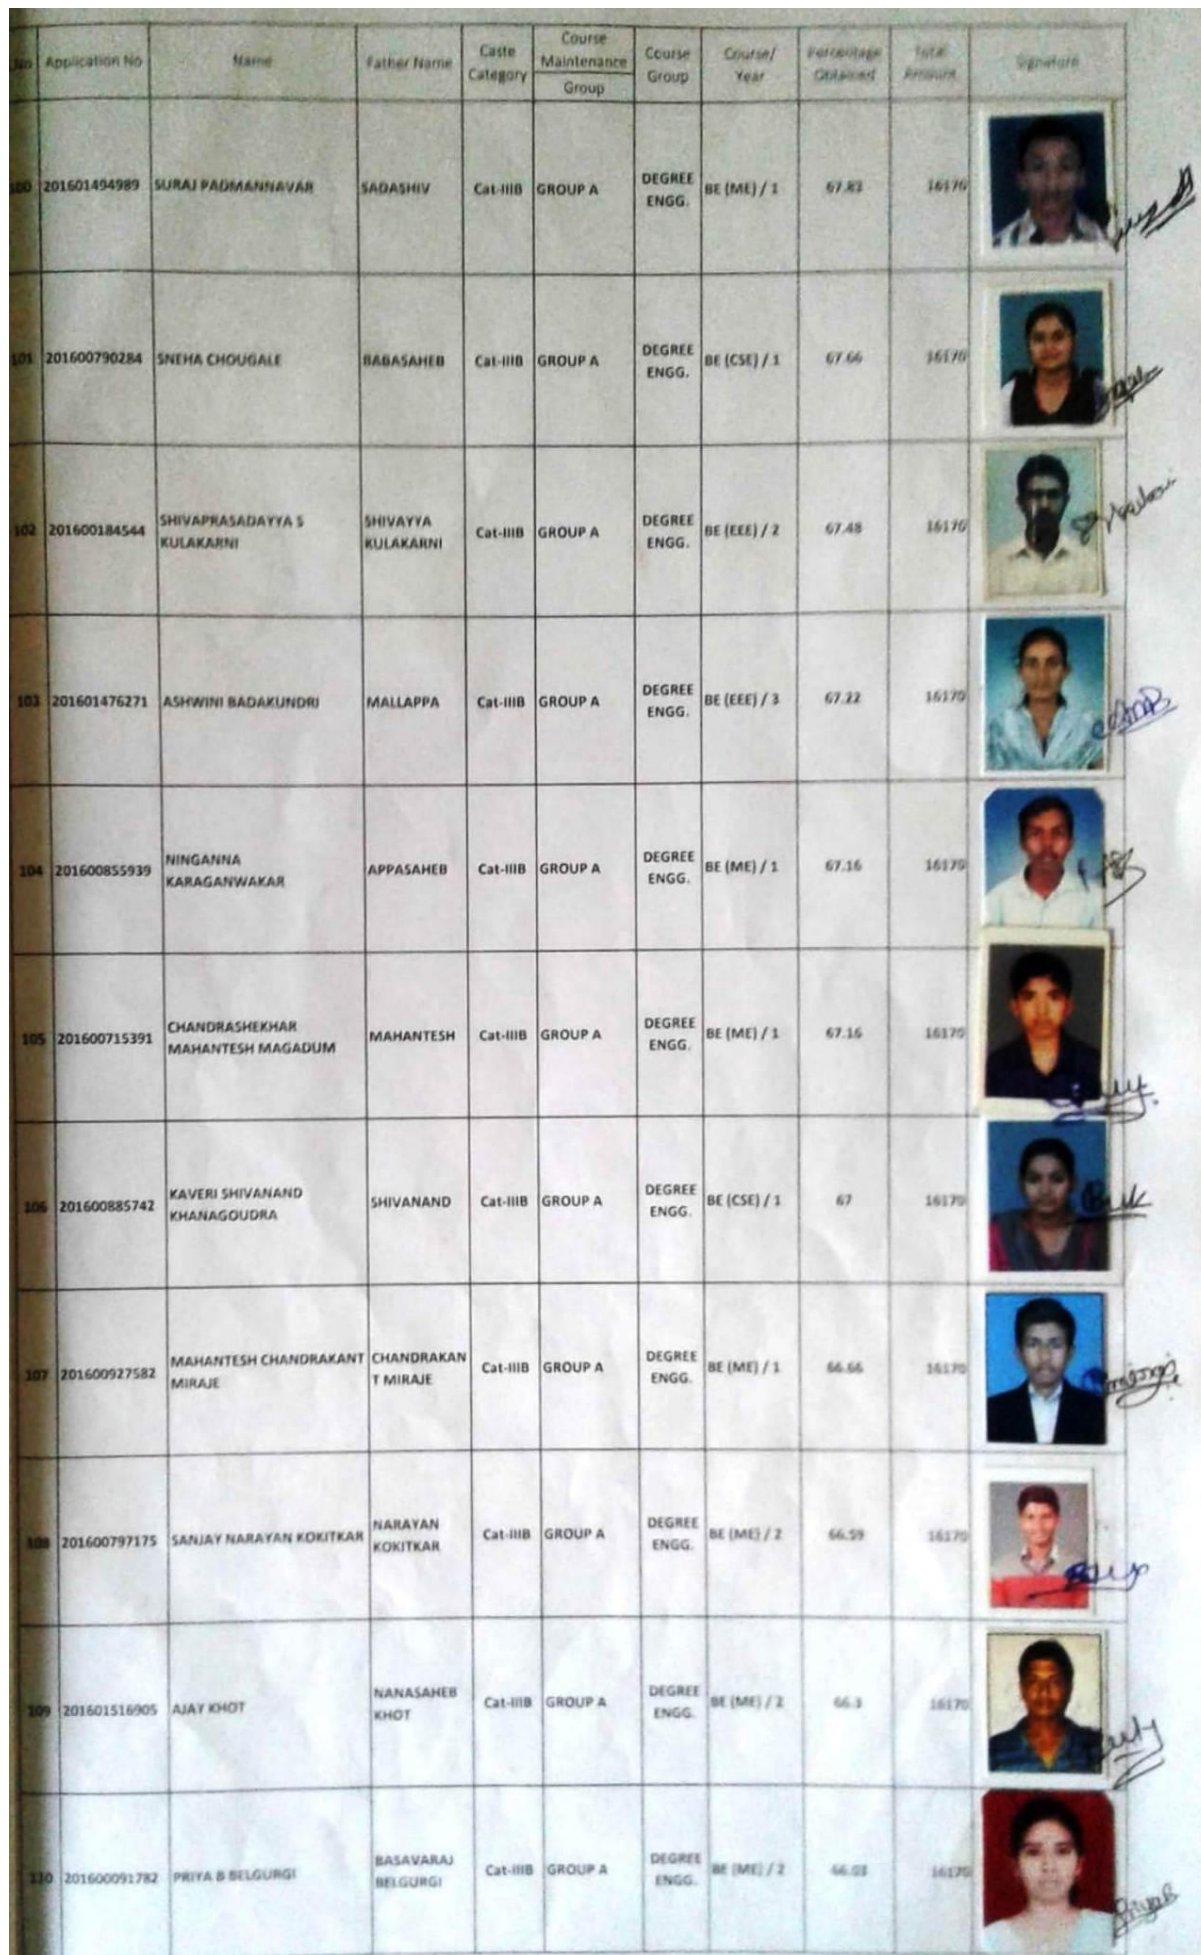 No Application No Name Father Name Caste Category Course Maintenance Group Course Group Course/ Year Percentage Obtained Total Amount Signature
100 201601494989 SURAJ PADMANNAVAR SADASHIV Cat-IIIB GROUP A DEGREE ENGG. BE (ME) / 1 67.83 16170
101 201600790284 SNEHA CHOUGALE BABASAHEB Cat-IIIB GROUP A DEGREE ENGG. BE (CSE) / 1 67.66 16170
102 201600184544 SHIVAPRASADAYYA S KULAKARNI SHIVAYYA KULAKARNI Cat-IIIB GROUP A DEGREE ENGG. BE (EEE) / 2 67.48 16170
103 201601476271 ASHWINI BADAKUNDRI MALLAPPA Cat-IIIB GROUP A DEGREE ENGG. BE (EEE) / 3 67.22 16170
104 201600855939 NINGANNA KARAGANWAKAR APPASAHEB Cat-IIIB GROUP A DEGREE ENGG. BE (ME) / 1 67.16 16170
105 201600715391 CHANDRASHEKHAR MAHANTESH MAGADUM MAHANTESH Cat-IIIB GROUP A DEGREE ENGG. BE (ME) / 1 67.16 16170
106 201600885742 KAVERI SHIVANAND KHANAGOUDRA SHIVANAND Cat-IIIB GROUP A DEGREE ENGG. BE (CSE) / 1 67 16170
107 201600927582 MAHANTESH CHANDRAKANT MIRAJE CHANDRAKAN T MIRAJE Cat-IIIB GROUP A DEGREE ENGG. BE (ME) / 1 66.66 16170
108 201600797175 SANJAY NARAYAN KOKITKAR NARAYAN KOKITKAR Cat-IIIB GROUP A DEGREE ENGG. BE (ME) / 2 66.59 16170
109 201601516905 AJAY KHOT NANASAHEB KHOT Cat-IIIB GROUP A DEGREE ENGG. BE (ME) / 2 66.3 16170
110 201600091782 PRIYA B BELGURGI BASAVARAJ BELGURGI Cat-IIIB GROUP A DEGREE ENGG. BE (ME) / 2 66.03 16170